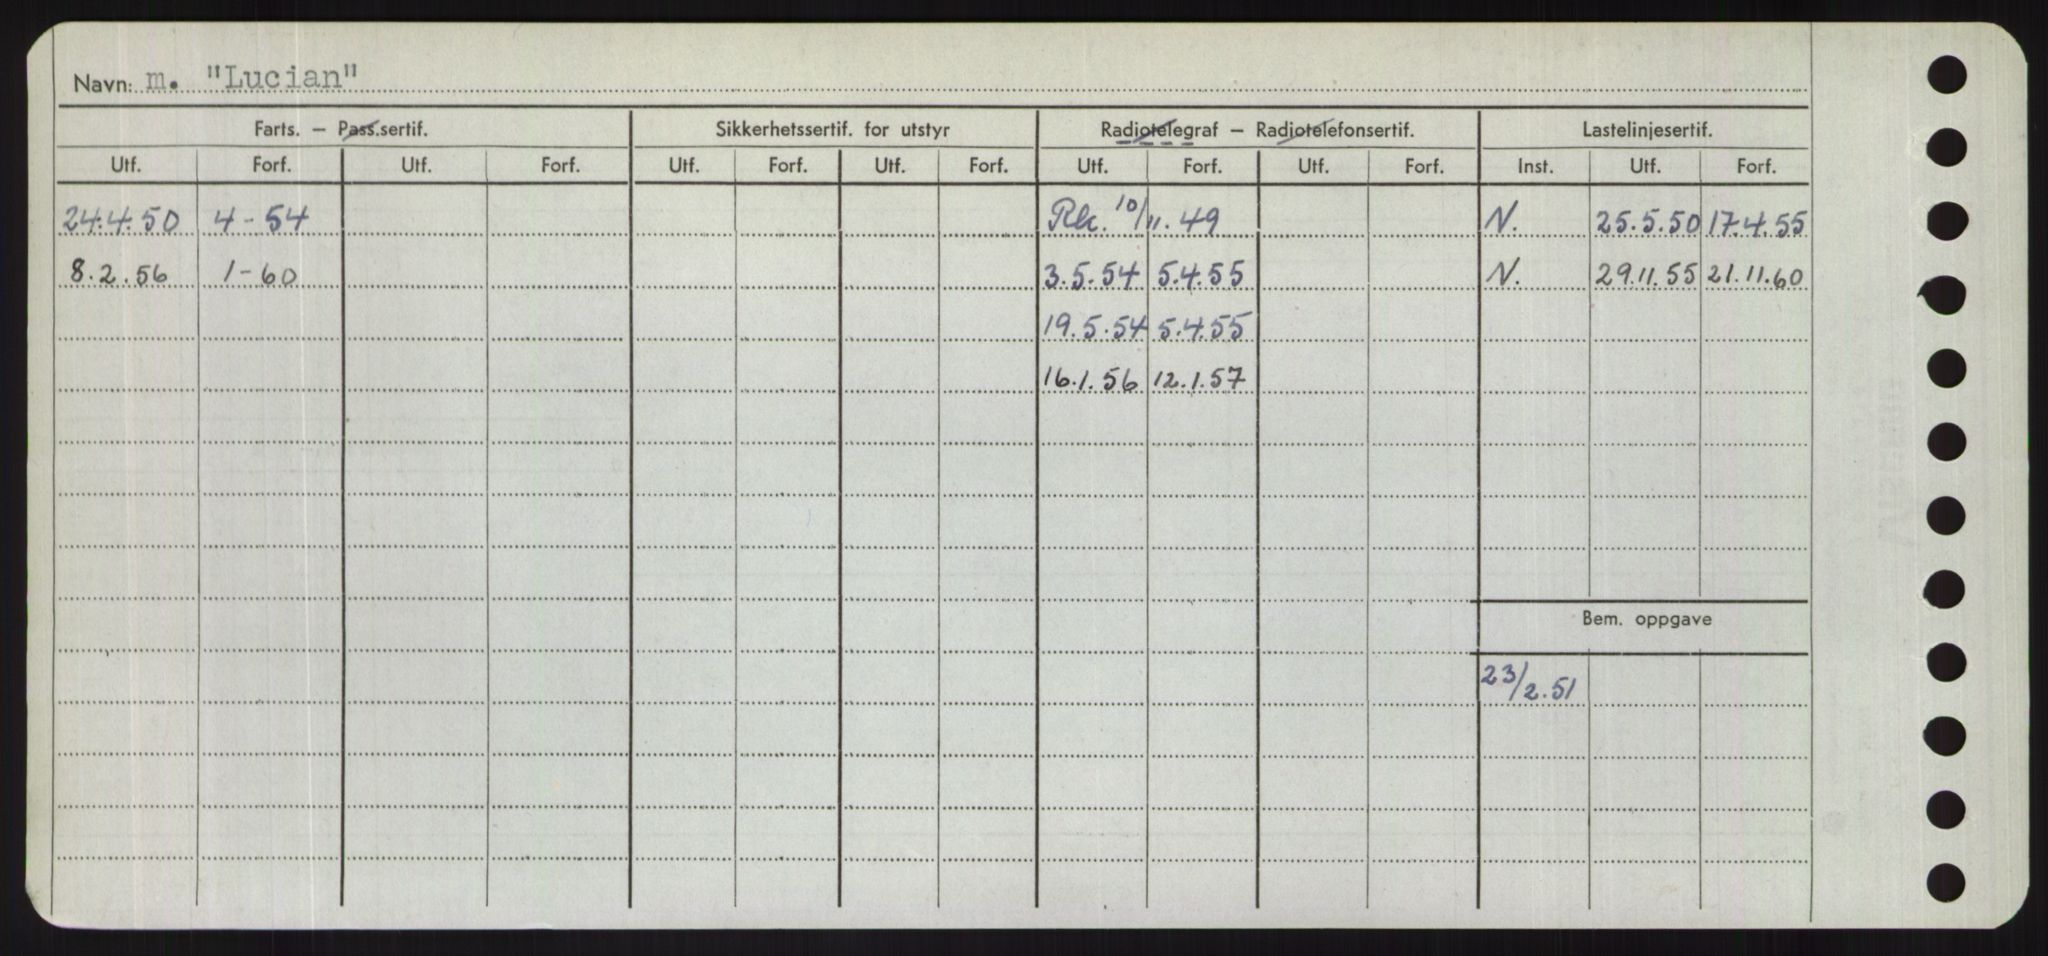 Navn: m. "Lucian"
Farts. – Pass.sertif. Sikkerhetssertif. for utstyr Radiotelegraf – Radiotelefonsertif. Lastelinjesertif.
Utf. Forf. Utf. Forf. Utf. Forf. Utf. Forf. Utf. Forf. Utf. Forf. Inst. Utf. Forf.
24.4.50 4-54 Rk. 10/11.49 N. 25.5.50 17.4.55
8.2.56 1-60 3.5.54 5.4.55 N. 29.11.55 21.11.60
19.5.54 5.4.55
16.1.56 12.1.57
Bem. oppgave
23/2.51